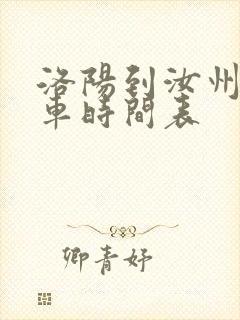 洛陽到汝州
車時間表
卿青妤